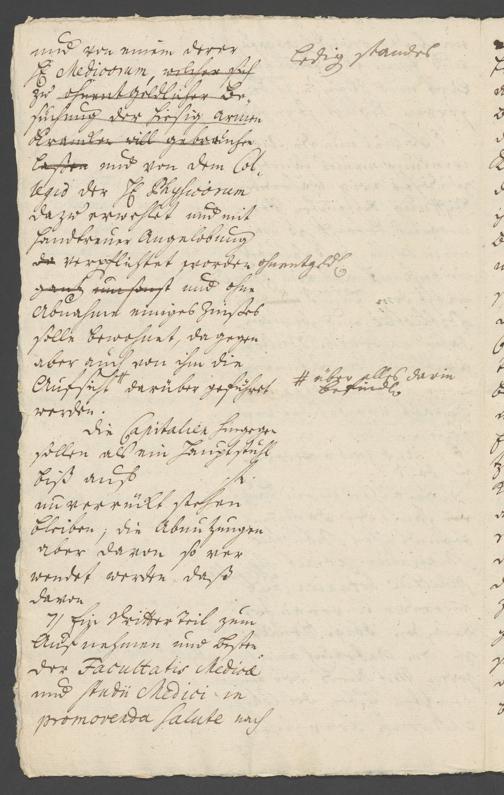 und von einem derer ledig standes
H. Medicorum, welcher sich
zu ohnentgeldlicher Be-
suchung der hiesig armen
Krancken will gebrauchen
laßen und von dem Col-
legio der H. Physicorum
dazu erwehlet und mit
handtreuer Angelobung
verpflichtet worden ohnentgeldl.
gantz umsonst und ohne
Abnahme einiges Zinßes
solle bewohnet, dagegen
aber auch von ihm die
Aufsicht # darüber geführet # über alles darin
werden. befindl.
Die Capitalien hingegen
sollen als ein Hauptstuhl
biß
unverrückt stehen
bleiben, die Abnutzungen
aber davon so ver
wendet werden daß
davon
Ein dritter Teil zum
Aufnehmen und besten
der Facultatis Medicæ
und studii Medici in
promovenda salute nach